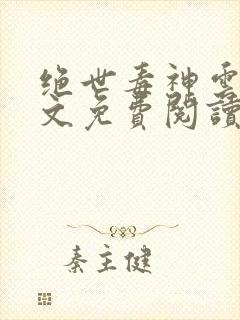 绝世毒神雲
文免費閱讀
秦主健